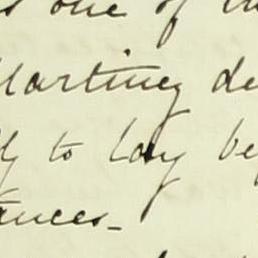 s one of
Martiney de
ly to lay be
tances_